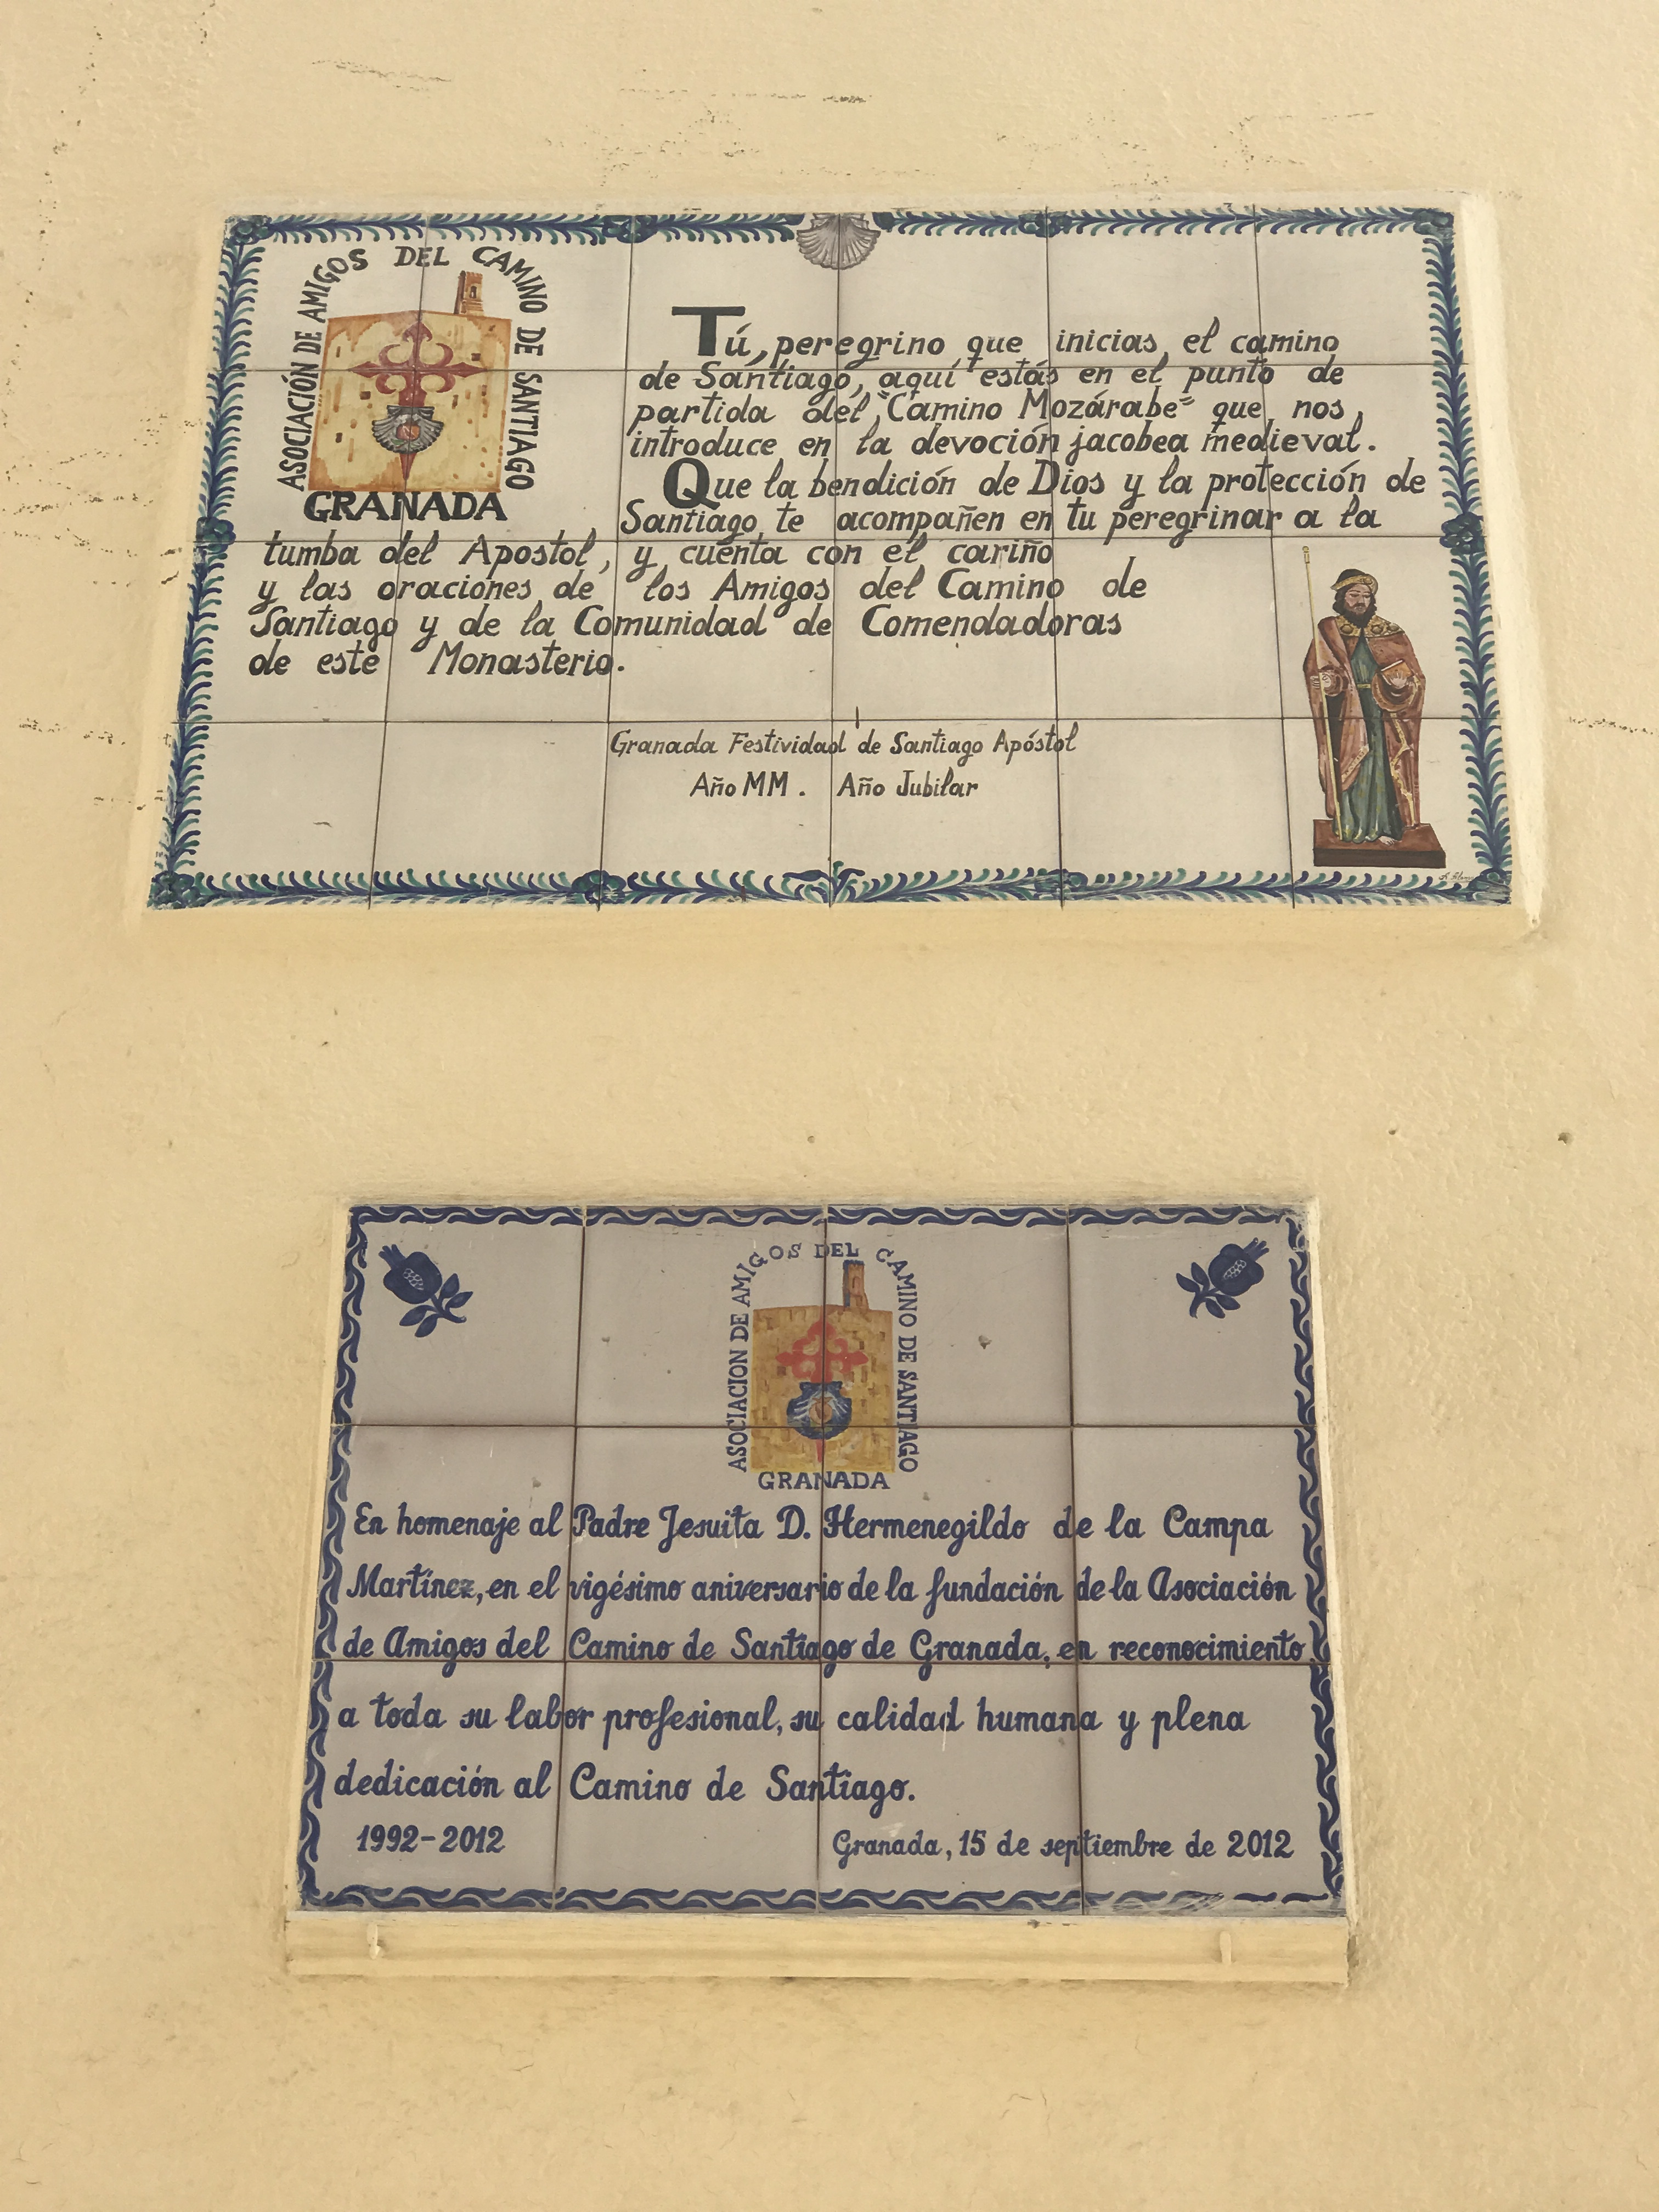 ASOCIACIÓN DE AMIGOS DEL CAMINO DE SANTIAGO
GRANADA
Tú, peregrino que inicias el camino
de Santiago, aquí estás en el punto de
partida del "Camino Mozárabe" que nos
introduce en la devoción jacobea medieval.
Que la bendición de Dios y la protección de
Santiago te acompañen en tu peregrinar a la
tumba del Apostol, y cuenta con el cariño
y las oraciones de los Amigos del Camino de
Santiago y de la Comunidad de Comendadoras
de este Monasterio.
Granada Festividad de Santiago Apóstol
Año MM. Año Jubilar
ASOCIACION DE AMIGOS DEL CAMINO DE SANTIAGO
GRANADA
En homenaje al Padre Jesuita D. Hermenegildo de la Campa
Martínez, en el vigésimo aniversario de la fundación de la Asociación
de Amigos del Camino de Santiago de Granada, en reconocimiento
a toda su labor profesional, su calidad humana y plena
dedicación al Camino de Santiago.
1992-2012
Granada, 15 de septiembre de 2012